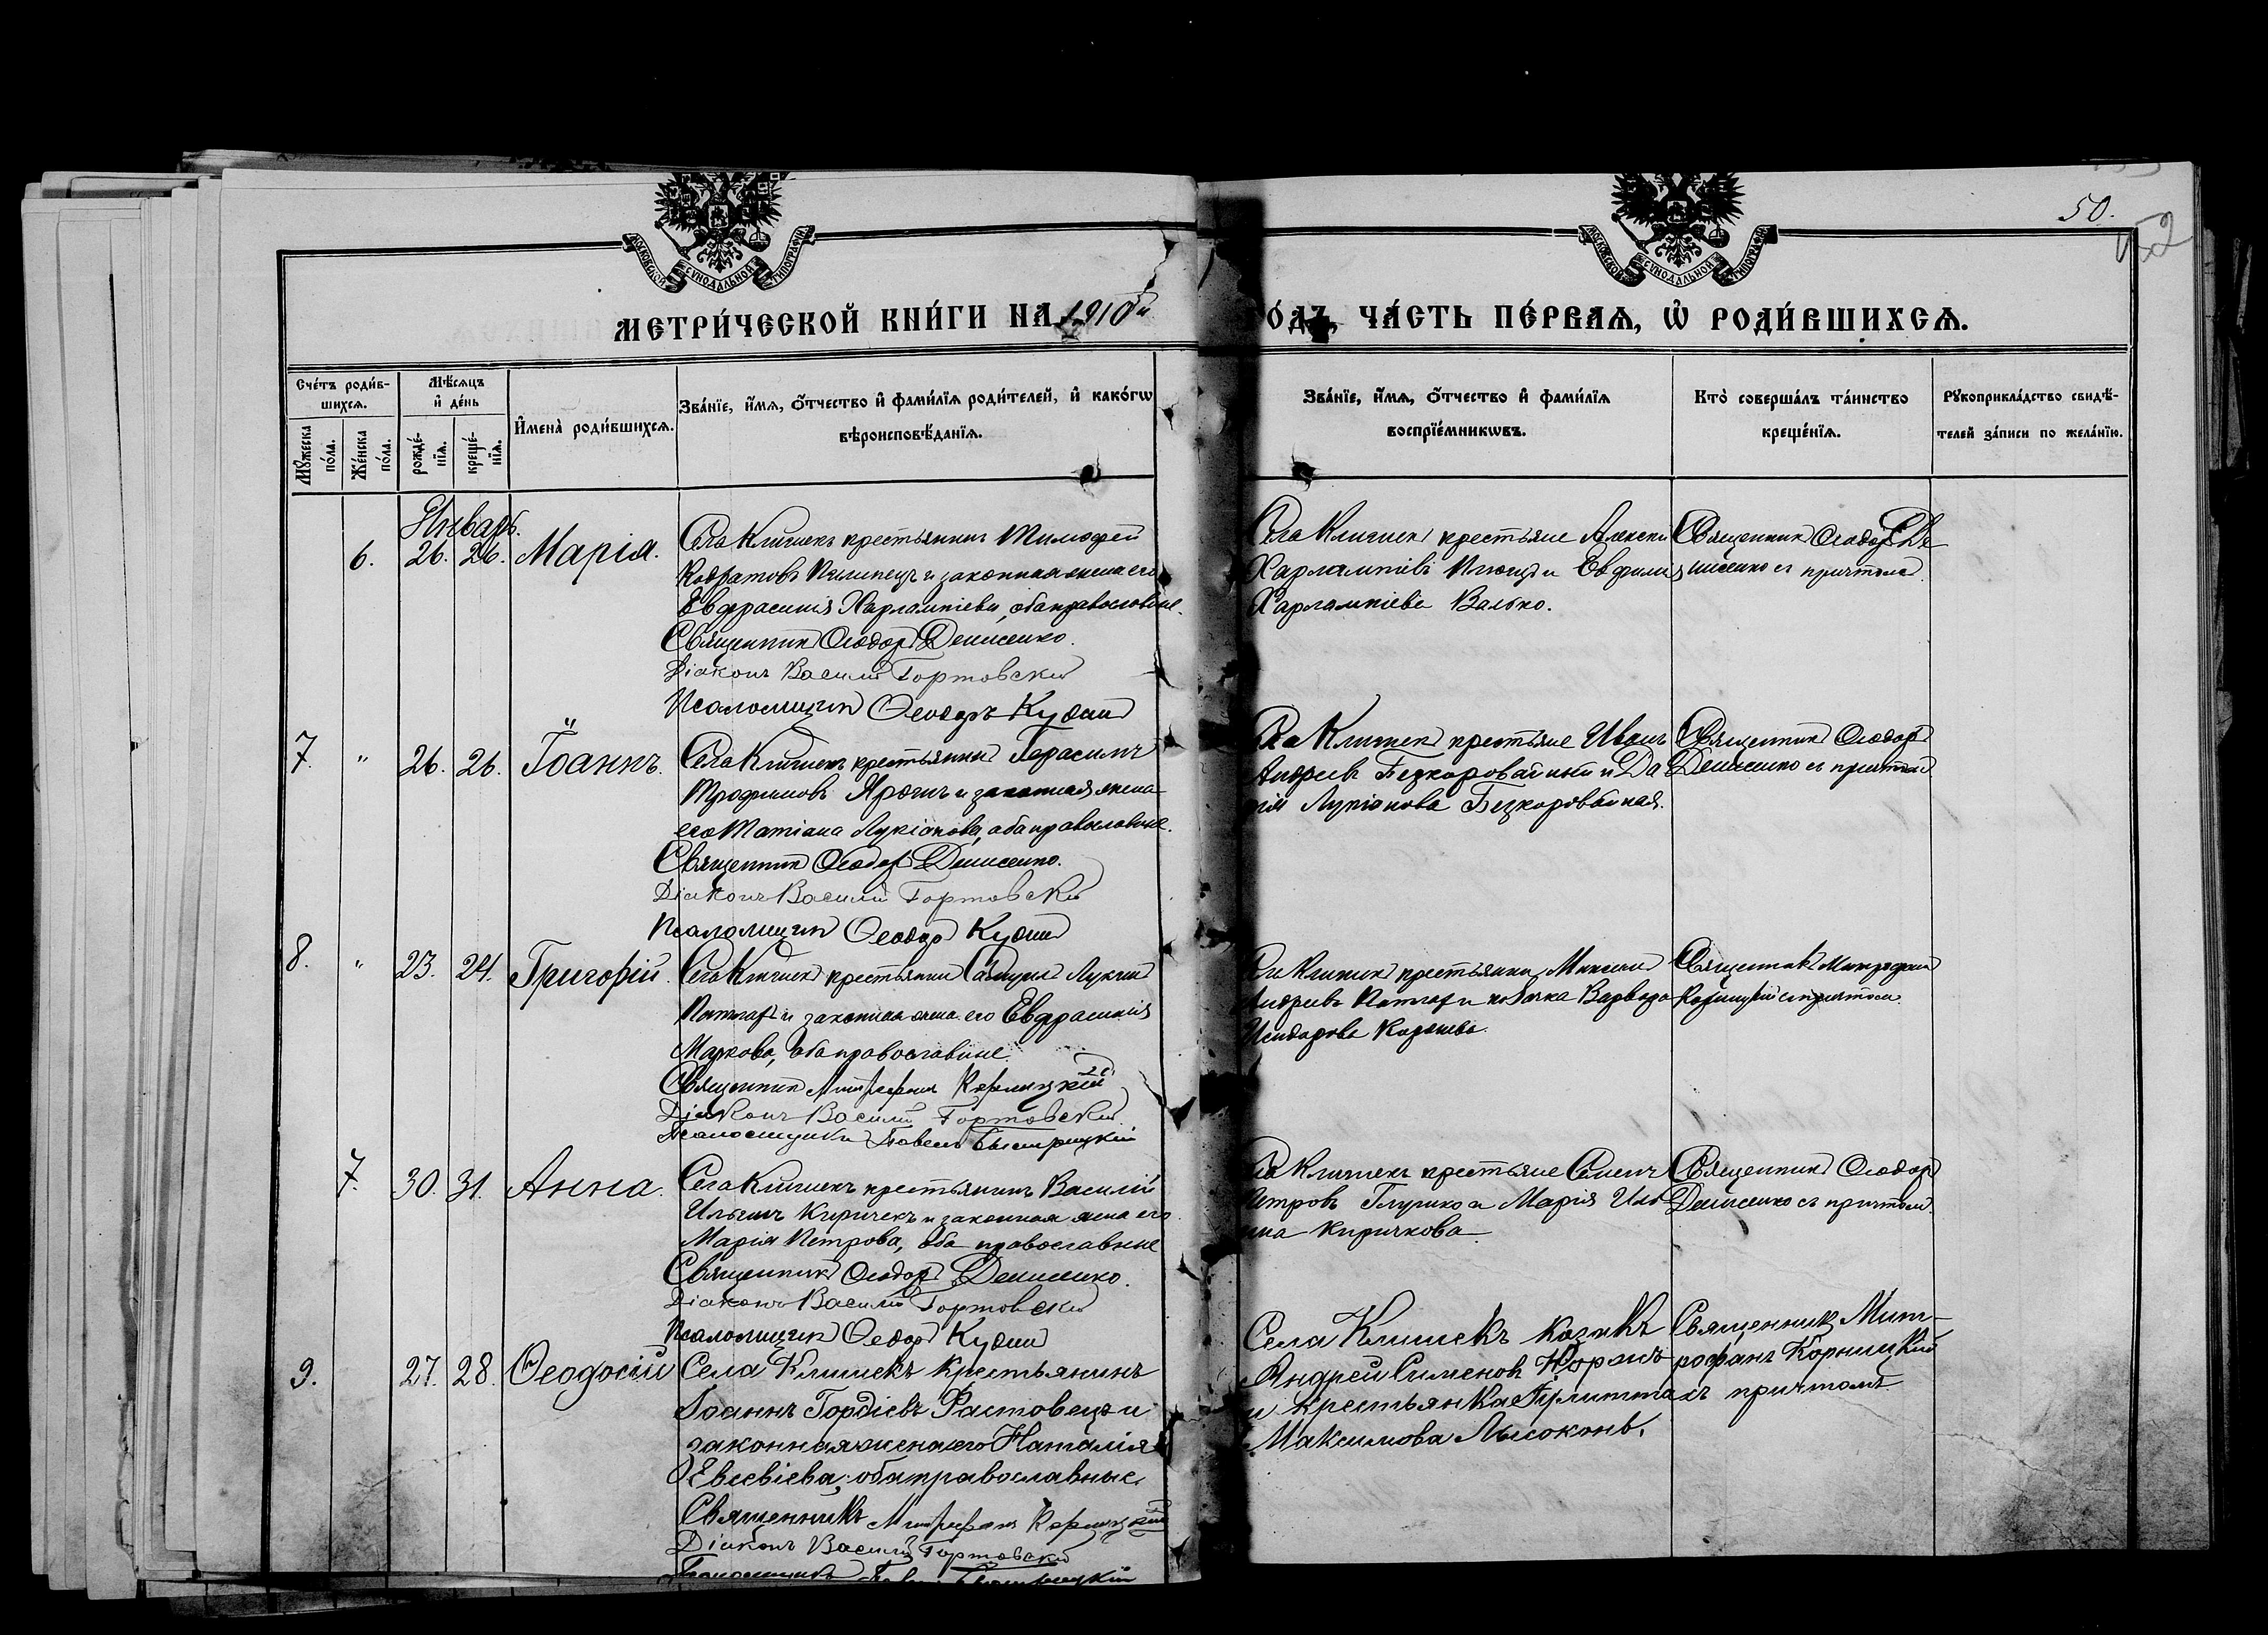 МОСКОВСКОЙ СУНОДАЛЬНОЙ ТИПОГРАФІИ
МОСКОВСКОЙ СУНОДАЛЬНОЙ ТИПОГРАФІИ
50.
52
МЕТРИ́ЧЕСКОЙ КНИ́ГИ НА 1910й
О́ДЪ, ЧА́СТЬ ПЕ́РВАѦ, Ѡ҆ РОДИ́ВШИХСѦ.
Сче́тъ роди́в-
шихсѧ.
Мѣ́сѧцъ
и҆ де́нь
Мꙋ́жеска по́ла.
Же́нска по́ла.
рожде́-
нїѧ.
креще́-
нїѧ.
И҆мена̀ роди́вшихсѧ.
Зва́нїе, и҆́мѧ, ѻ҆́тчество и҆ фами́лїѧ роди́телей, и҆ како́гѡ
вѣроисповѣ́данїѧ.
Зва́нїе, и҆́мѧ, ѻ҆́тчество и҆ фами́лїѧ
воспрїе́мникѡвъ.
Кто̀ соверша́лъ та́инство
креще́нїѧ.
Рꙋкоприкла́дство свидѣ́-
телей за́писи по жела́нїю.
Январь.
6. 26. 26. Марія.
Села Клишекъ крестьянинъ Тимофей
Кодратовъ Пилипецъ и законная жена его
Евфрасинія Харлампіева, оба православные.
Священникъ Ѳеодоръ Денисенко.
Діаконъ Василій Гортовскій
Псаломщикъ Ѳеодоръ Кудин
Села Клишекъ крестьяне Алексей
Харлампіевъ и Евфимія
Харлампіева Валько.
Священникъ Ѳеодоръ Де
нисенко съ причтомъ
7. " 26. 26. Іоаннъ.
Села Клишекъ крестьянинъ Герасимъ
Трофимовъ Ярошъ и законная жена
его Татіана Лукіанова, оба православные.
Священникъ Ѳеодоръ Денисенко.
Діаконъ Василій Гортовскій
Псаломщикъ Ѳеодоръ Кудин
Села Клишекъ крестьяне Иванъ
Андреевъ Безкоровайный и Да
рія Лукіанова Безкоровайная.
Священникъ Ѳеодоръ
Денисенко съ причтомъ
8. " 23. 24. Григорій.
Села Клишекъ крестьянинъ Лукинъ
и законная жена его Евфрасинія
Маркова, оба православные.
Священникъ Митрофанъ Корницкій
Діаконъ Василій Гортовскій
Псаломщикъ Павелъ Быстрицкій
Села Клишекъ крестьянинъ Максимъ
Андреевъ и козачка Варвара
Исидорова
Священникъ Митрофанъ
Корницкій съ причтомъ.
7. 30. 31. Анна.
Села Клишекъ крестьянинъ Василій
Ильинъ Киричекъ и законная жена его
Марія Петрова, оба православные
Священникъ Ѳеодоръ Денисенко.
Діаконъ Василій Гортовскій
Псаломщикъ Ѳеодоръ Кудин
Села Клишекъ крестьяне Семенъ
Петровъ Глушко и Марія Иль
ина Киричкова.
Священникъ Ѳеодоръ
Денисенко съ причтомъ.
9. 27. 28. Ѳеодосій
Села Клишекъ крестьянинъ
Іоаннъ Гордіевъ Растовецъ и
законная жена его Наталія
Евсевіева, оба православные.
Священникъ Митрофанъ Корницкій
Діаконъ Василій Гортовскій
Псаломщикъ Павелъ Быстрицкій
Села Клишекъ козакъ
Андрей Сименов Коржъ
и крестьянка Іулитта
Максимова Лысоконь.
Священникъ Мит-
рофанъ Корницкій
съ причтомъ